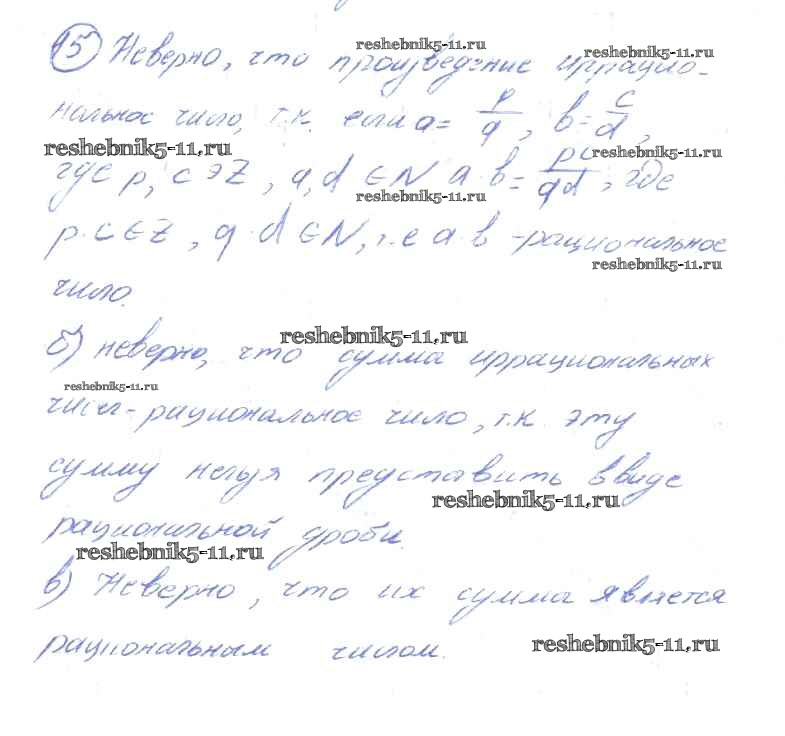 15 Неверно, что произведение иррацио-
reshebnik5-11.ru
reshebnik5-11.ru
нальное число, т.к. если a = p/q, b = c/d,
reshebnik5-11.ru
reshebnik5-11.ru
где p, c ∋ Z, q, d ∈ N a·b = pc/qd, где
reshebnik5-11.ru
p·c ∈ Z, q·d ∈ N, т.е a·b - рациональное
reshebnik5-11.ru
число.
reshebnik5-11.ru
б) неверно, что сумма иррациональных
reshebnik5-11.ru
чисел - рациональное число, т.к. эту
сумму нельзя представить ввиде
reshebnik5-11.ru
рациональной дроби.
reshebnik5-11.ru
в) Неверно, что их сумма является
рациональным числом.
reshebnik5-11.ru